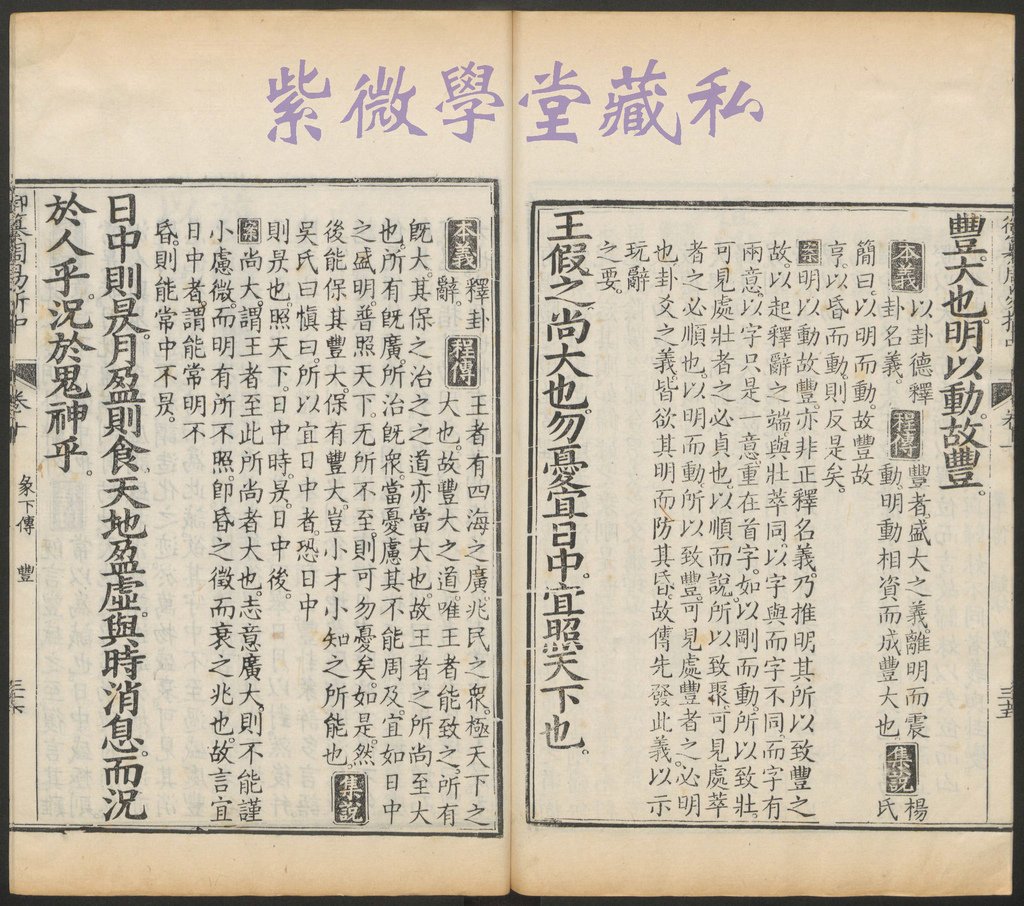 紫微學堂藏私
豐。大也。明以動。故豐。
本義 以卦德釋卦名義。 程傳 豐者盛大之義。離明而震動。明動相資而成豐大也 集說 楊氏
簡曰。以明而動。故豐故
亨。以昏而動。則反是矣。
案 明以動故豐。亦非正釋名義。乃推明其所以致豐之
故。以起釋辭之端。與壯萃同。以字與而字不同。而字有
兩意。以字只是一意。重在首字。如以剛而動。所以致壯。
可見處壯者之必貞也。以順而說。所以致聚。可見處萃
者之必順也。以明而動。所以致豐。可見處豐者之必明
也。卦爻之義。皆欲其明而防其昏。故傳先發此義。以示
玩辭
之要。
王假之。尚大也。勿憂宜日中。宜照天下也。
本義 釋卦辭。 程傳 王者有四海之廣。兆民之衆。極天下之大也。故豐大之道。唯王者能致之。所有
既大。其保之治之之道亦當大也。故王者之所尚至大
也。所有既廣。所治既衆。當憂慮其不能周及。宜如日中
之盛明。普照天下。无所不至。則可勿憂矣。如是。然
後能保其豐大。保有豐大。豈小才小知之所能也。 集說
吳氏曰愼曰。所以宜日中者。恐日中
則昃也。照天下。日中時。昃。日中後。
案 尚大。謂王者至此所尚者大也。志意廣大。則不能謹
小慮微。而明有所不照。卽昏之徵而衰之兆也。故言宜
日中者。謂能常明不
昏。則能常中不昃。
日中則昃。月盈則食。天地盈虛。與時消息。而況
於人乎。況於鬼神乎。
彖下傳 豐